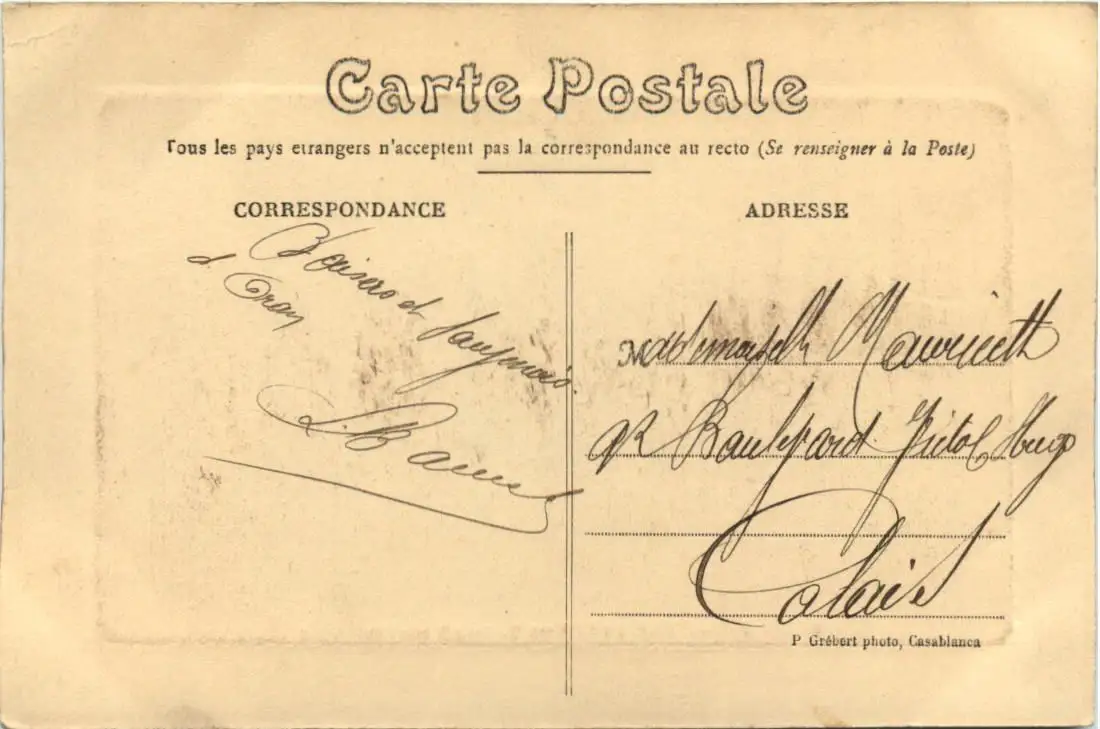 Carte Postale
Tous les pays etrangers n'acceptent pas la correspondance au recto (Se renseigner à la Poste)
CORRESPONDANCE
ADRESSE
Baisers
d'Oran
L. B
Mademoiselle
Boulevard Victor Hugo
Calais
P Grébert photo, Casablanca